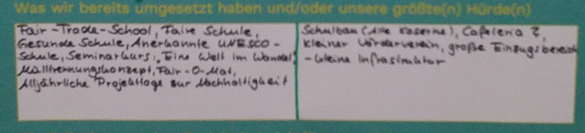 Was wir bereits umgesetzt haben und/oder unsere größte(n) Hürde(n)
Fair-Trade-School, Faire Schule,
Gesunde Schule, Anerkannte UNESCO-
Schule, Seminarkurs: "Eine Welt im Wandel",
Mülltrennungskonzept, Fair-O-Mat,
Alljährliche Projekttage zur Nachhaltigkeit
Schulbau (Alte Kaserne), Cafeteria
kleiner Förderverein, große Einzugsbereich
- kleine Infrastruktur